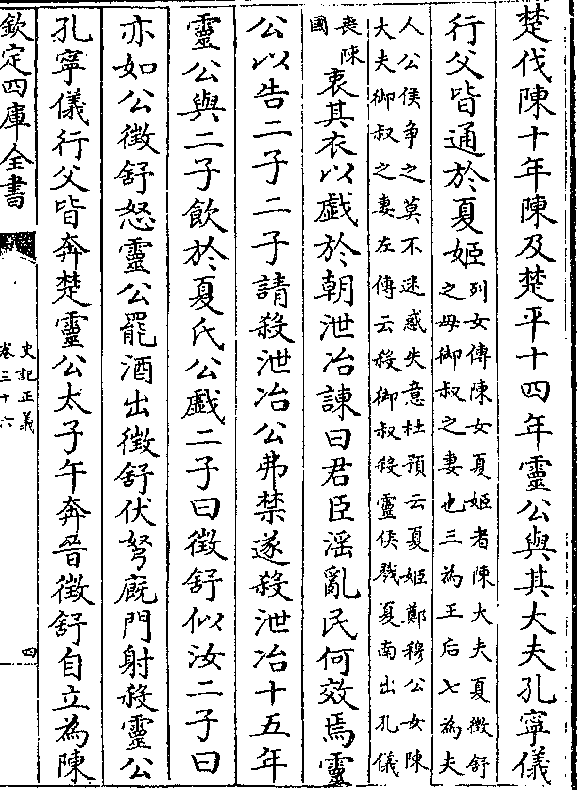 楚伐陳十年陳及楚平十四年靈公與其大夫孔寧儀
行父皆通於夏姬
列女傳陳女夏姬者陳大夫夏徵舒
之母御叔之妻也三為王后七為夫
人公侯争之莫不迷惑失意杜預云夏姬鄭穆公女陳
大夫御叔之妻左傳云殺御叔殺靈侯戮夏南出孔儀
喪陳
國
衷其衣以戯於朝泄冶諫曰君臣滛亂民何效焉靈
公以告二子二子請殺泄冶公弗禁遂殺泄冶十五年
靈公與二子飲於夏氏公戯二子曰徵舒似汝二子曰
亦如公徵舒怒靈公罷酒出徵舒伏弩廐門射殺靈公
孔寧儀行父皆奔楚靈公太子午奔晉徵舒自立為陳
欽定四庫全書
史記正義
卷三十六
四